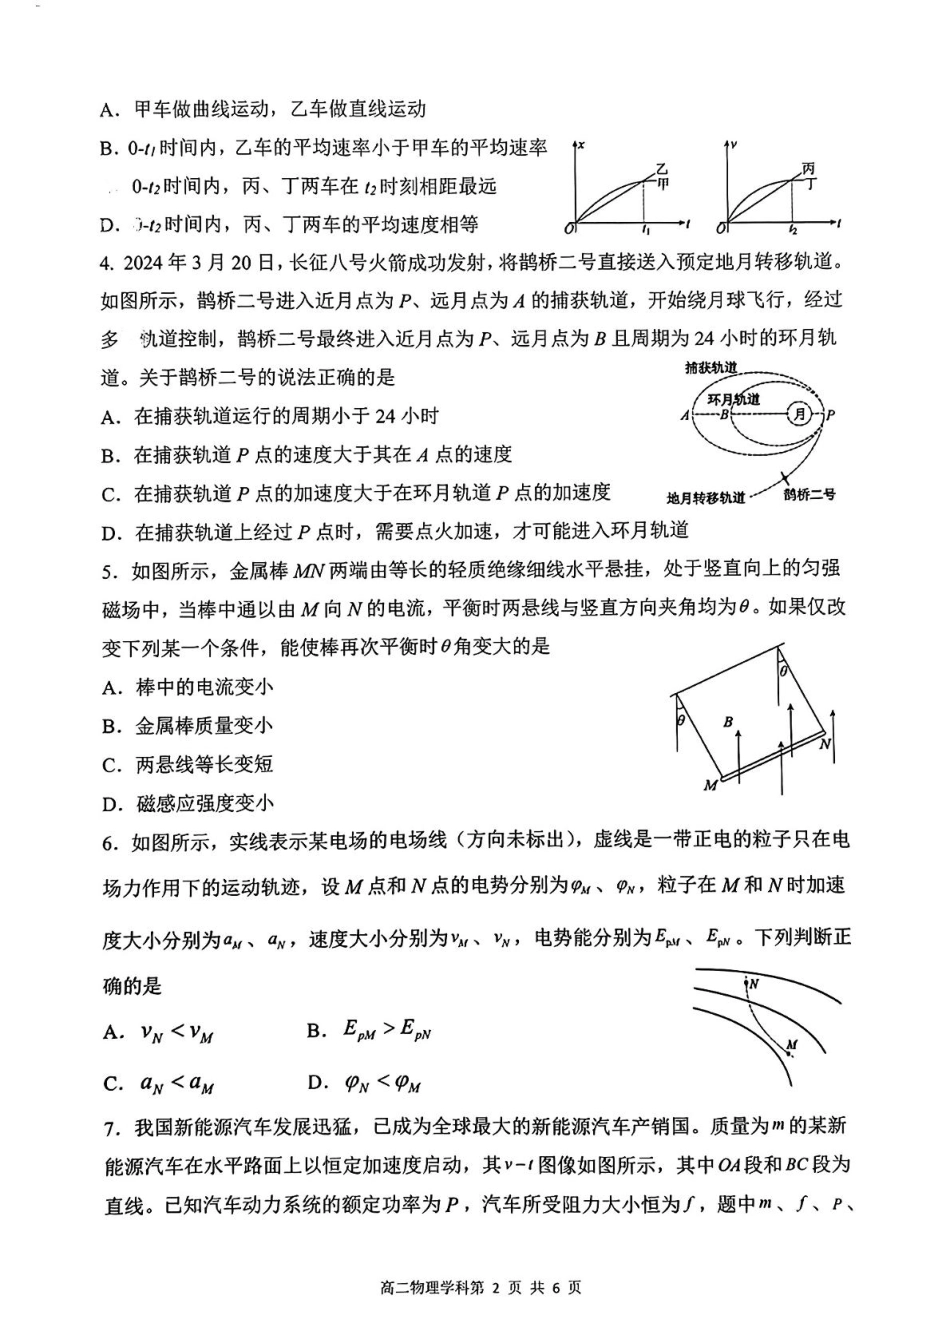 A．甲车做曲线运动，乙车做直线运动
B．0-t₁时间内，乙车的平均速率小于甲车的平均速率
0-t₂时间内，丙、丁两车在 t₂时刻相距最远
D．0-t₂时间内，丙、丁两车的平均速度相等
x
乙
甲
O
t₁
t
v
丙
丁
O
t₂
t
4. 2024 年 3 月 20 日，长征八号火箭成功发射，将鹊桥二号直接送入预定地月转移轨道。
如图所示，鹊桥二号进入近月点为 P、远月点为 A 的捕获轨道，开始绕月球飞行，经过
多 轨道控制，鹊桥二号最终进入近月点为 P、远月点为 B 且周期为 24 小时的环月轨
道。关于鹊桥二号的说法正确的是
A．在捕获轨道运行的周期小于 24 小时
B．在捕获轨道 P 点的速度大于其在 A 点的速度
C．在捕获轨道 P 点的加速度大于在环月轨道 P 点的加速度
D．在捕获轨道上经过 P 点时，需要点火加速，才可能进入环月轨道
捕获轨道
环月轨道
A
B
月
P
地月转移轨道
鹊桥二号
5．如图所示，金属棒 MN 两端由等长的轻质绝缘细线水平悬挂，处于竖直向上的匀强
磁场中，当棒中通以由 M 向 N 的电流，平衡时两悬线与竖直方向夹角均为θ。如果仅改
变下列某一个条件，能使棒再次平衡时θ角变大的是
A．棒中的电流变小
B．金属棒质量变小
C．两悬线等长变短
D．磁感应强度变小
θ
θ
B
N
M
6．如图所示，实线表示某电场的电场线（方向未标出），虚线是一带正电的粒子只在电
场力作用下的运动轨迹，设 M 点和 N 点的电势分别为φM、φN，粒子在 M 和 N 时加速
度大小分别为aM、aN，速度大小分别为vM、vN，电势能分别为EpM、EpN。下列判断正
确的是
A．vN＜vM B．EpM＞EpN
C．aN＜aM D．φN＜φM
N
M
7．我国新能源汽车发展迅猛，已成为全球最大的新能源汽车产销国。质量为m的某新
能源汽车在水平路面上以恒定加速度启动，其v−t图像如图所示，其中OA段和BC段为
直线。已知汽车动力系统的额定功率为P，汽车所受阻力大小恒为f，题中m、f、P、
高二物理学科第 2 页 共 6 页